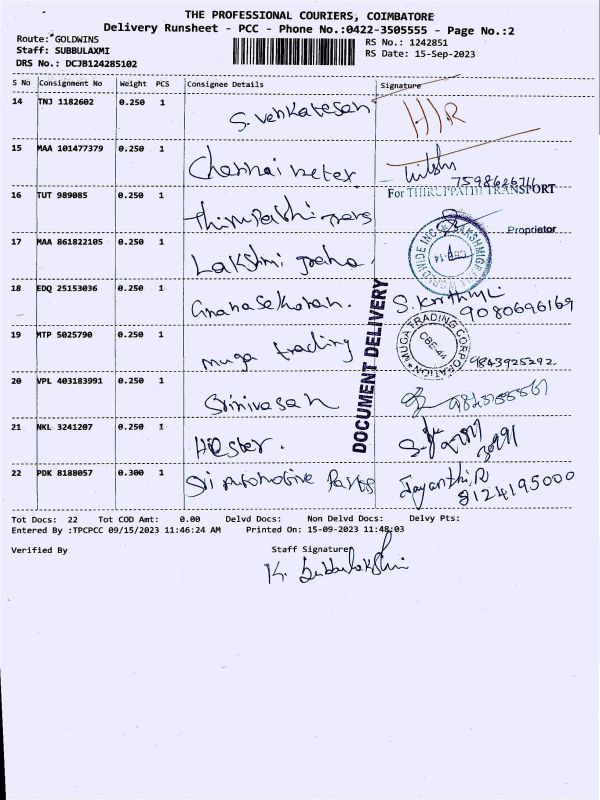 THE PROFESSIONAL COURIERS, COIMBATORE
Delivery Runsheet - PCC - Phone No.:0422-3505555 - Page No.:2
Route: GOLDWINS
Staff: SUBBULAXMI
DRS No.: DCJB124285102
RS No.: 1242851
RS Date: 15-Sep-2023
S No Consignment No Weight PCS Consignee Details Signature
14 TNJ 1182602 0.250 1 S. Venkatesan H/R
15 MAA 101477379 0.250 1 Chennai Meter 7598626711
For THIRUPPATHI TRANSPORT
16 TUT 989085 0.250 1 Thirupathi
Proprietor
17 MAA 861822105 0.250 1 Lakshmi
18 EDQ 25153036 0.250 1 Gnanasekaran. 9080696169
19 MTP 5025790 0.250 1 muga trading MUGA TRADING CORPORATION CBE-44 9843925292
20 VPL 403183991 0.250 1 Srinivasan
21 NKL 3241207 0.250 1
22 PDK 8188057 0.300 1 Sri Automotive Parts Jayanthi.R
8124195000
DOCUMENT DELIVERY
Tot Docs: 22 Tot COD Amt: 0.00 Delvd Docs: Non Delvd Docs: Delvy Pts:
Entered By :TPCPCC 09/15/2023 11:46:24 AM Printed On: 15-09-2023 11:48:03
Verified By Staff Signature
K. Subbulakshmi